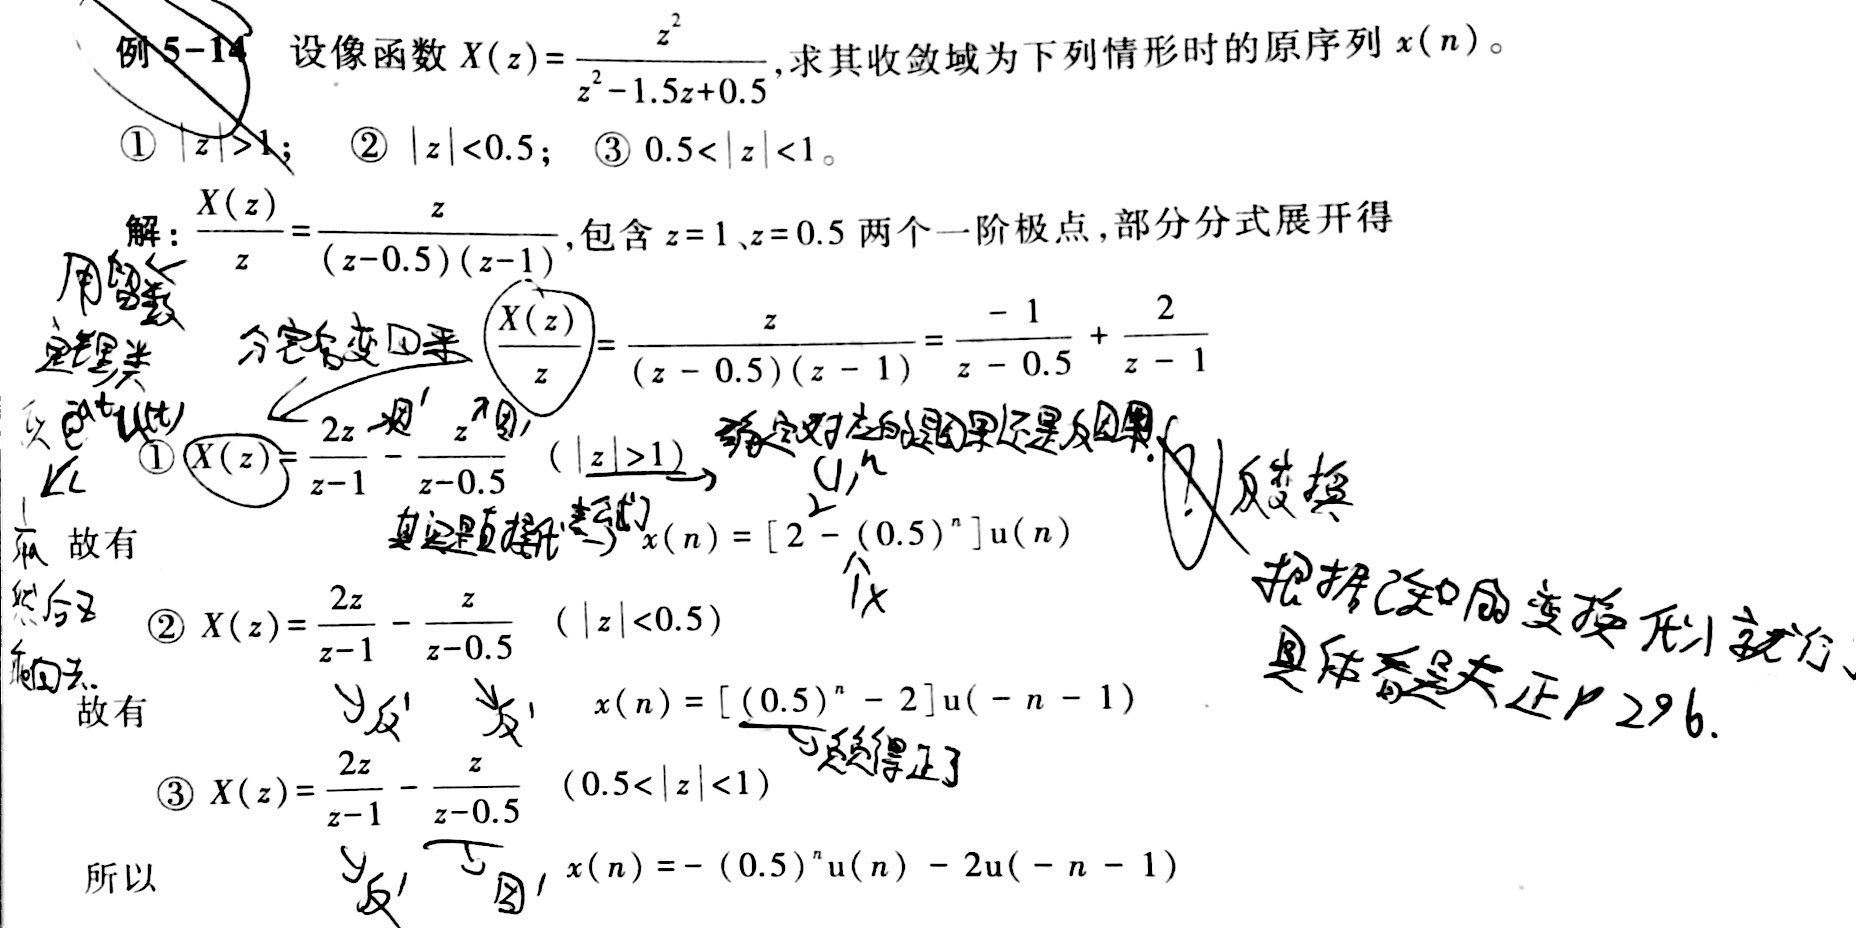 例 5-14 设像函数 X(z)=z²/(z²-1.5z+0.5),求其收敛域为下列情形时的原序列 x(n)。
① |z|>1; ② |z|<0.5; ③ 0.5<|z|<1。
解: X(z)/z=z/((z-0.5)(z-1)),包含 z=1、z=0.5 两个一阶极点,部分分式展开得
用留数
定理类
分完后变回来
X(z)/z = z/((z - 0.5)(z - 1)) = -1/(z - 0.5) + 2/(z - 1)
① X(z)=2z/(z-1) - z/(z-0.5) (|z|>1)
确定对应的是因果还是反因果.
反变换
故有 x(n) = [2 - (0.5)ⁿ]u(n)
根据已知的变换形式就行,
然后再
② X(z)=2z/(z-1) - z/(z-0.5) (|z|<0.5)
具体看是夫正P296.
故有 x(n) = [(0.5)ⁿ - 2]u(-n-1)
反 反
负负得正了
③ X(z)=2z/(z-1) - z/(z-0.5) (0.5<|z|<1)
所以 x(n)=-(0.5)ⁿu(n) - 2u(-n-1)
反 因